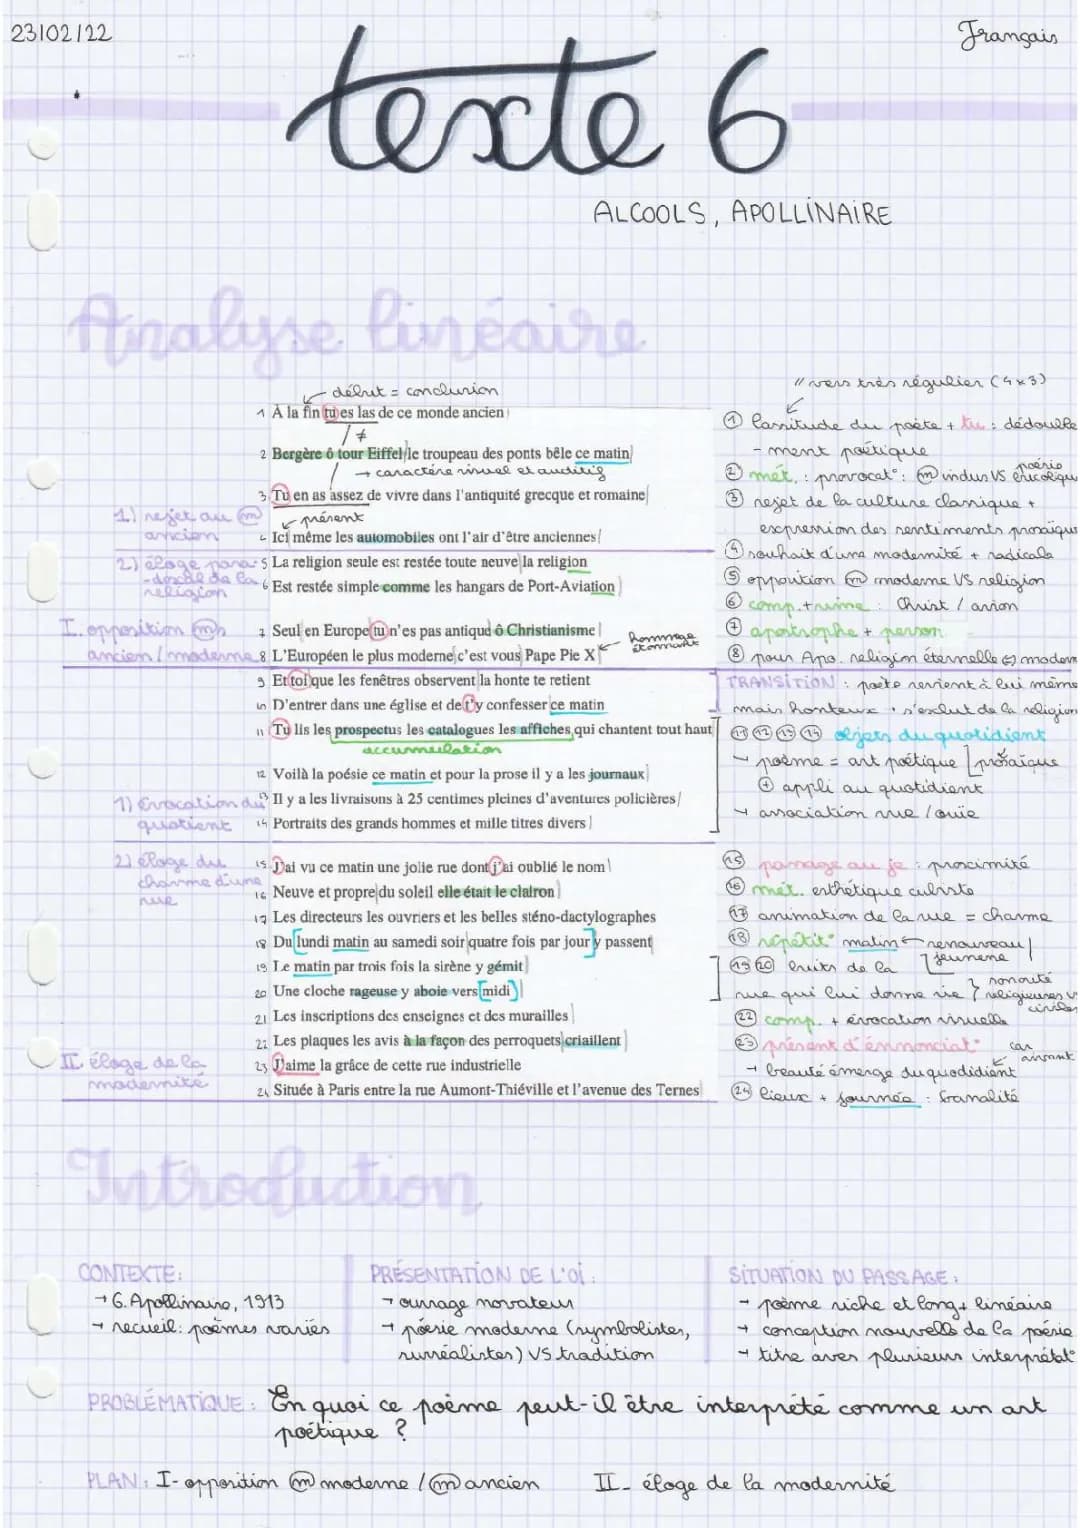 23/02/22
Français
texte 6
ALCOOLS, APOLLINAIRE
Analyse linéaire
début = conclusion
// vers très régulier (4x3)
1 À la fin tu es las de ce monde ancien
≠
2 Bergère ô tour Eiffel le troupeau des ponts bêle ce matin
→ caractère visuel et auditif
3 Tu en as assez de vivre dans l'antiquité grecque et romaine
présent
4 Ici même les automobiles ont l'air d'être anciennes
5 La religion seule est restée toute neuve la religion
6 Est restée simple comme les hangars de Port-Aviation
7 Seul en Europe tu n'es pas antique ô Christianisme
8 L'Européen le plus moderne c'est vous Pape Pie X
hommage étonnant
9 Et toi que les fenêtres observent la honte te retient
10 D'entrer dans une église et de t'y confesser ce matin
11 Tu lis les prospectus les catalogues les affiches qui chantent tout haut
accumulation
12 Voilà la poésie ce matin et pour la prose il y a les journaux
13 Il y a les livraisons à 25 centimes pleines d'aventures policières
14 Portraits des grands hommes et mille titres divers
15 J'ai vu ce matin une jolie rue dont j'ai oublié le nom
16 Neuve et propre du soleil elle était le clairon
17 Les directeurs les ouvriers et les belles sténo-dactylographes
18 Du lundi matin au samedi soir quatre fois par jour y passent
19 Le matin par trois fois la sirène y gémit
20 Une cloche rageuse y aboie vers midi
21 Les inscriptions des enseignes et des murailles
22 Les plaques les avis à la façon des perroquets criaillent
23 J'aime la grâce de cette rue industrielle
24 Située à Paris entre la rue Aumont-Thiéville et l'avenue des Ternes
1) rejet du m
ancien
2) éloge para-
-doxal de la
religion
I. opposition m
ancien / moderne
1) évocation du
quotient
2) éloge du
charme d'une
rue
II. éloge de la
modernité
① lassitude du poète + tu : dédouble
- ment poétique
② mét. : provocat° : m indus VS poésie bucolique
③ rejet de la culture classique +
expression des sentiments prosaïque
④ souhait d'une modernité + radicale
⑤ opposition m moderne VS religion
⑥ comp. + rime : Christ / avion
⑦ apostrophe + person
⑧ pour Apo. religion éternelle ⇔ modern
TRANSITION : poète revient à lui même
mais honteux : s'exclut de la religion
⑪ ⑫ ⑬ ⑭ objets du quotidient
→ poème = art poétique prosaïque
⊕ appli au quotidient
→ association vue / ouïe
⑮ passage au je : proximité
⑯ mét. esthétique cubiste
⑰ animation de la rue = charme
⑱ répétit° matin ← renouveau / jeunesse
⑲ ⑳ bruits de la
rue qui lui donne vie } sonorité religieuses VS civiles
㉒ comp. + évocation visuelle
㉓ présent d'énnonciat° car avivant
→ beauté émerge du quodidient
㉔ lieux + journée : banalité
Introduction
CONTEXTE :
→ G. Apollinaire, 1913
→ recueil : poèmes variés
PRÉSENTATION DE L'OI :
→ ouvrage novateur
→ poésie moderne (symbolistes,
surréalistes) VS tradition
SITUATION DU PASSAGE :
→ poème riche et long + linéaire
→ conception nouvelle de la poésie
→ titre avec plusieurs interprétat°
PROBLÉMATIQUE : En quoi ce poème peut-il être interprété comme un art
poétique ?
PLAN : I- opposition m moderne / m ancien II- éloge de la modernité